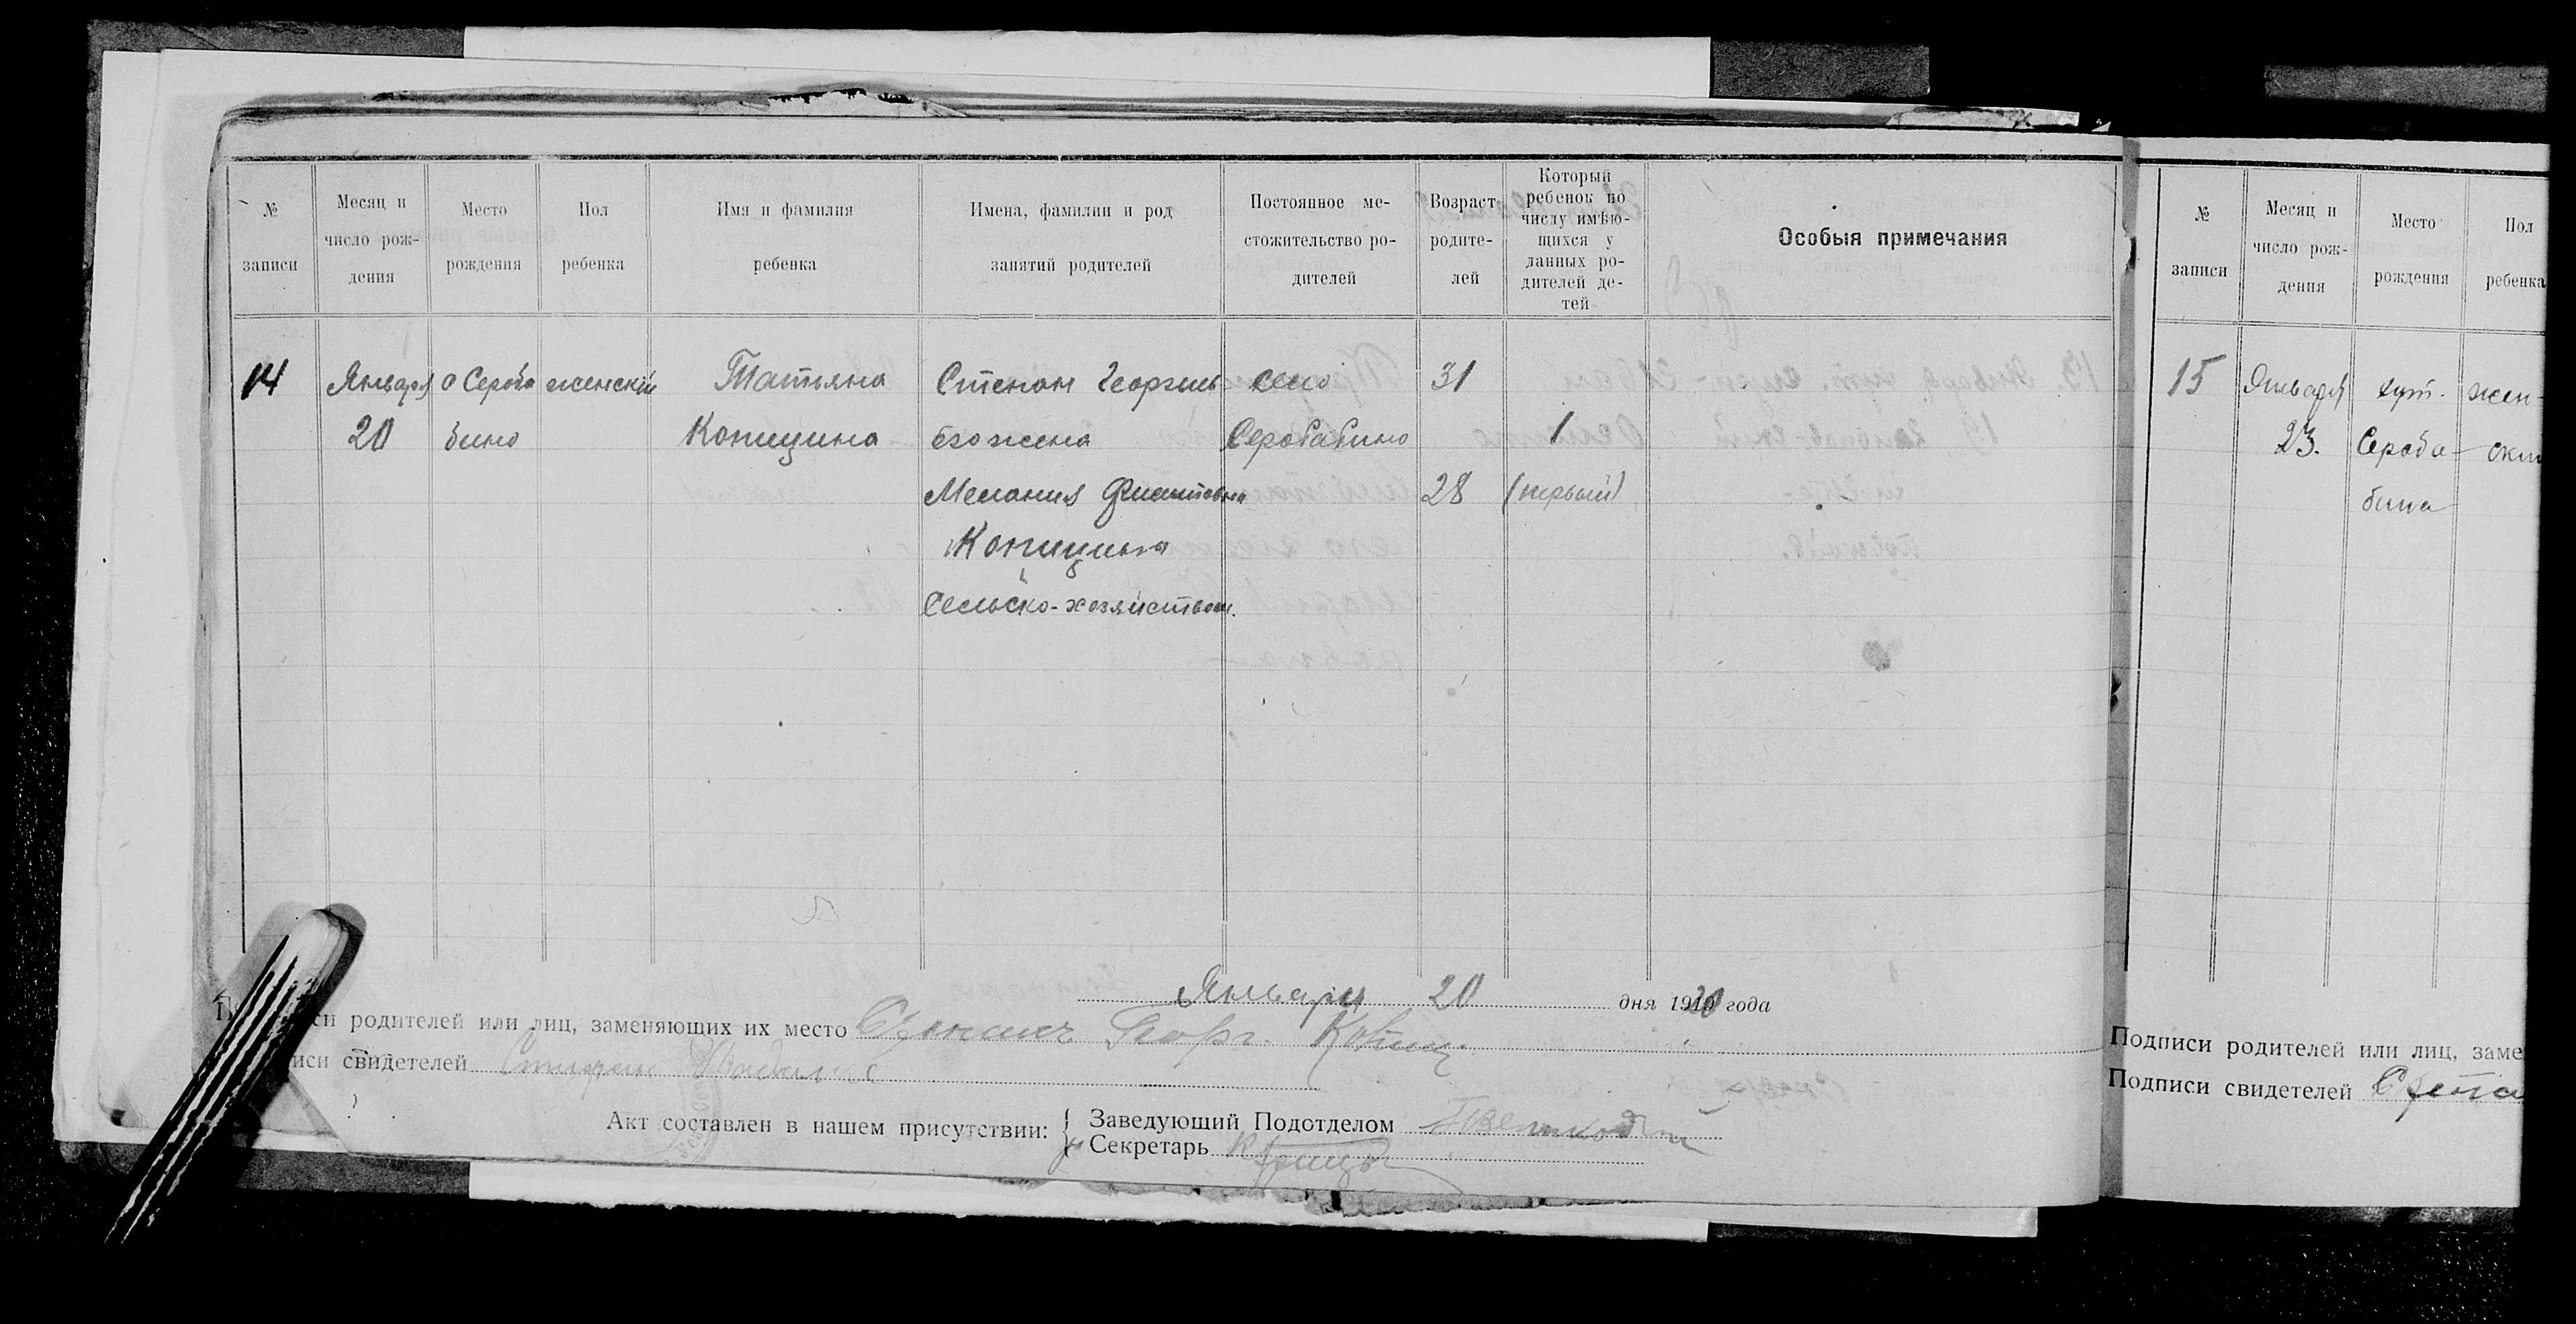 № записи
Месяц и число рождения
Место рождения
Пол ребенка
Имя и фамилия ребенка
Имена, фамилии и род занятий родителей
Постоянное местожительство родителей
Возраст родителей
Который ребенок по числу имѣющихся у данных родителей детей
Особыя примечания
14 Января с Сероба женский Татьяна Степан Георгиев село 31
20 бино Копицина его жена Серобабино 1
Мелания 28 (первый)
Копицина
Сельско-хозяйством.
Января 20 дня 1920 года
си родителей или лиц, заменяющих их место Георг.
иси свидетелей
Акт составлен в нашем присутствии:
Заведующий Подотделом
Секретарь
№ записи
Месяц и число рождения
Место рождения
Пол ребенка
15 Января хут. жен-
23. Сероба- ски
бина
Подписи родителей или лиц, заме
Подписи свидетелей